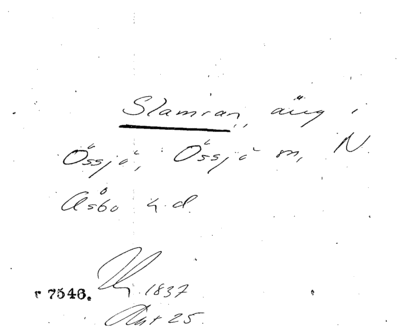 Slamran, äng i
Össjö, Össjö sn, N.
Åsbo hd.
r 7546.
1837
Akt 25.